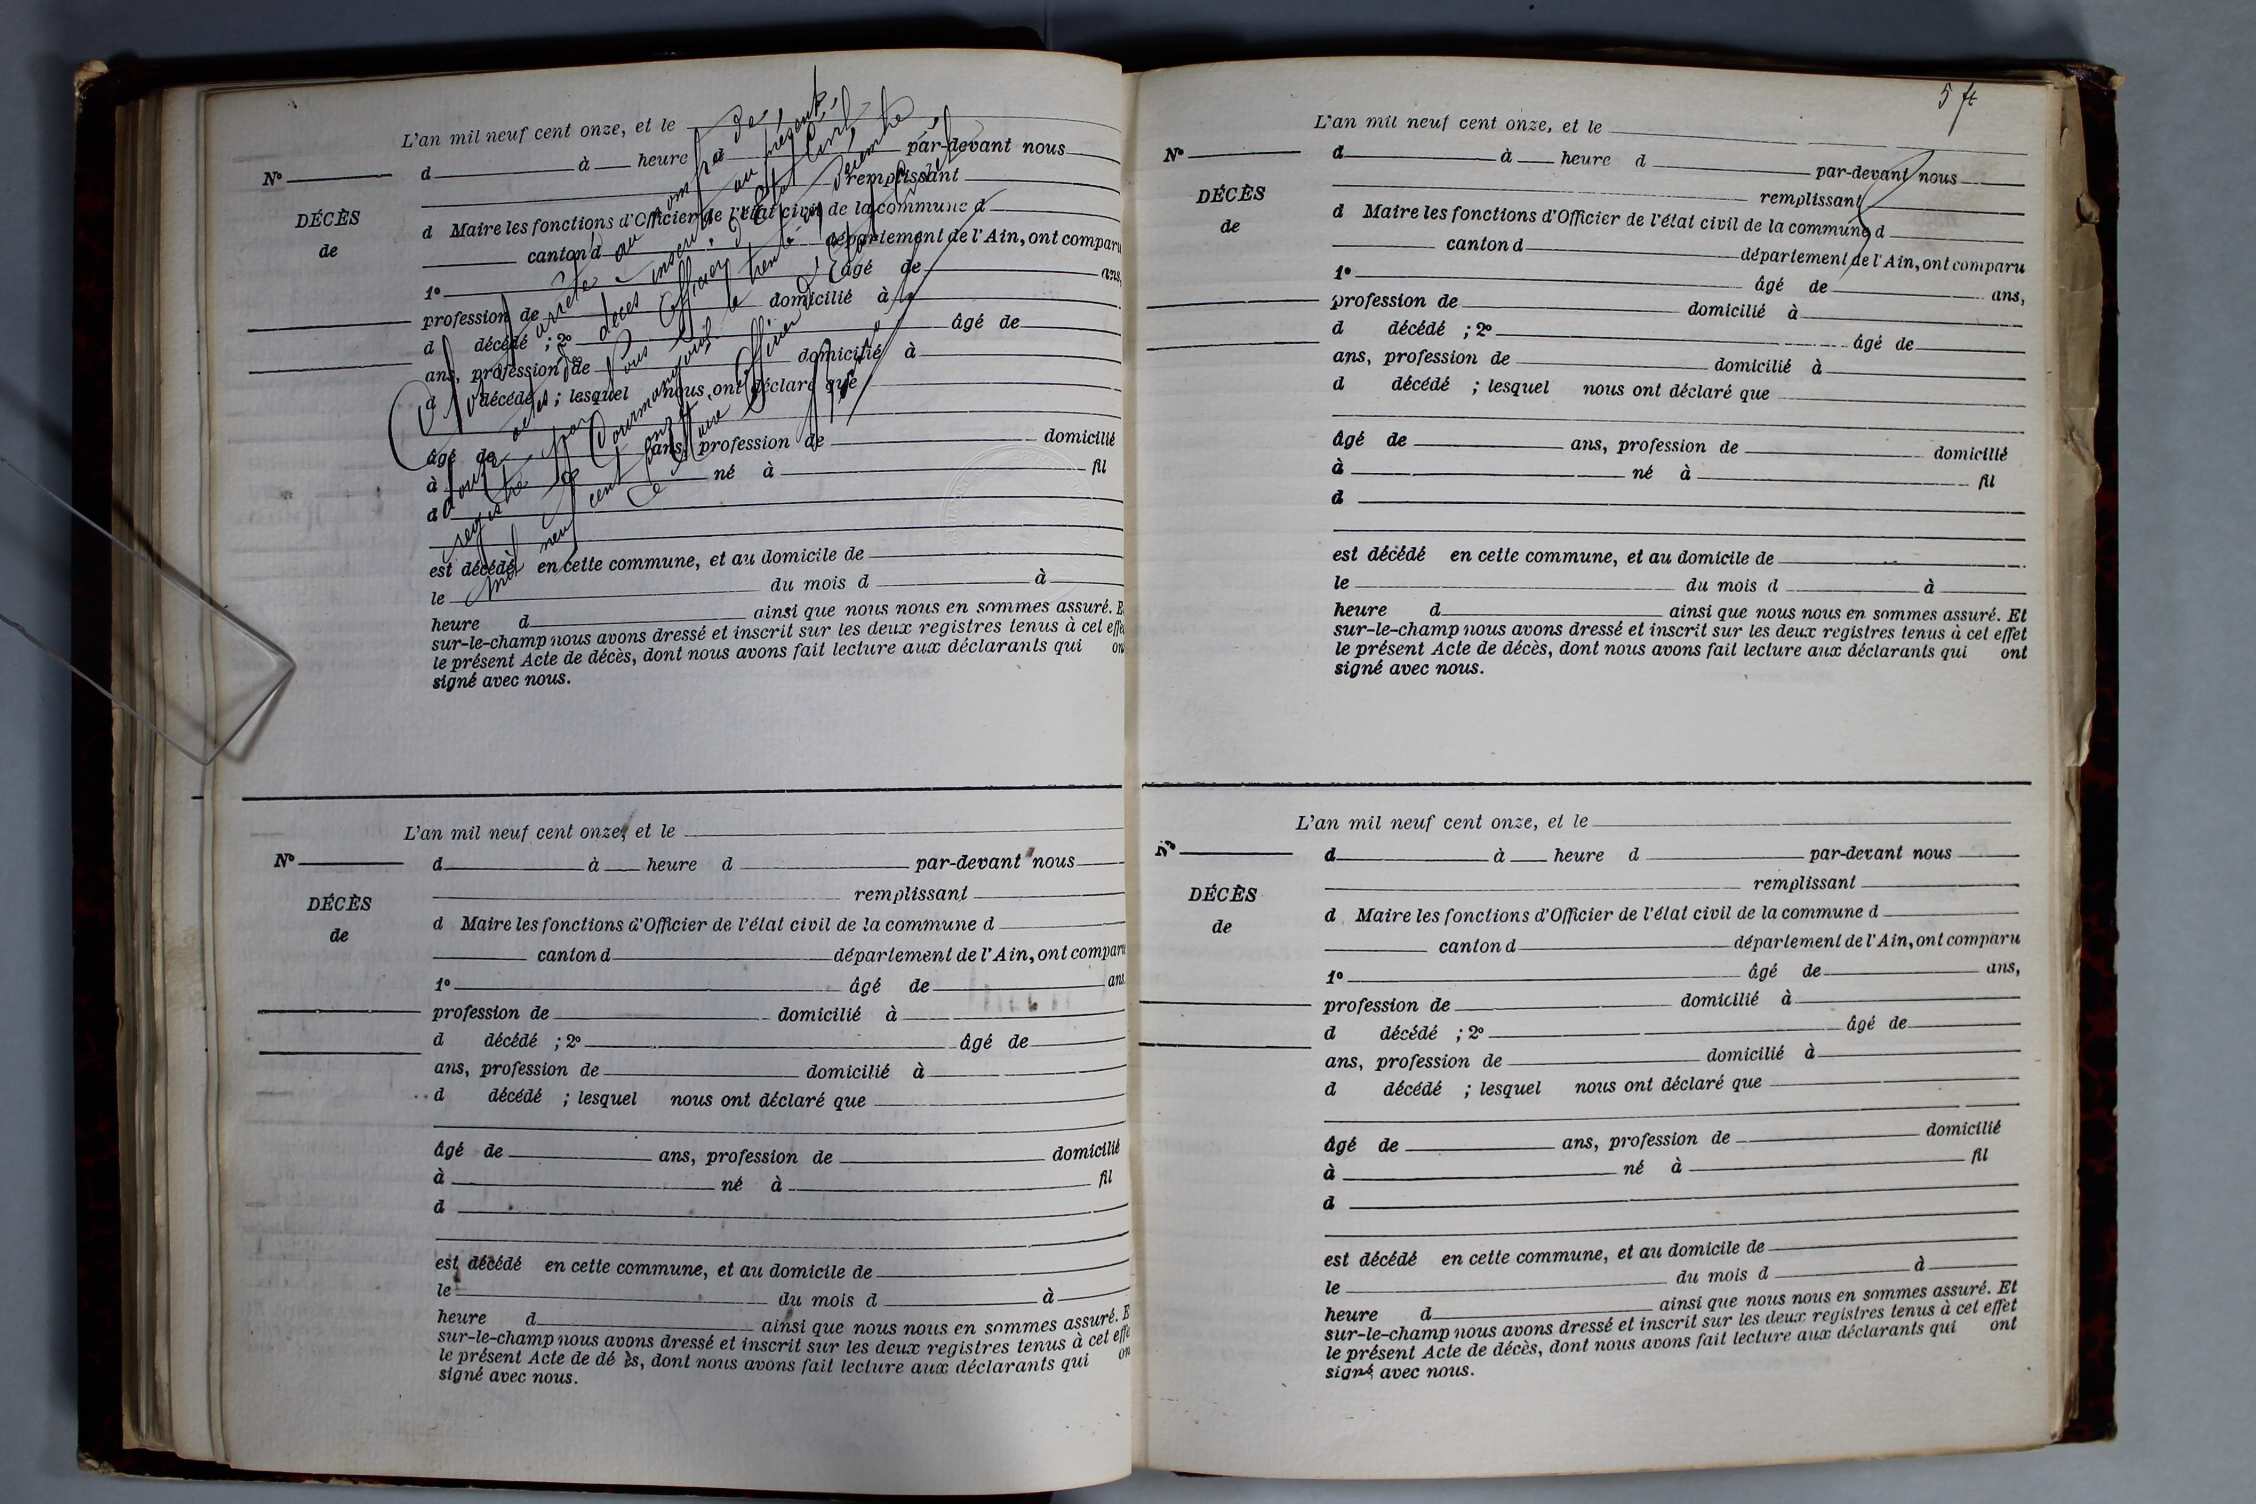 L'an mil neuf cent onze, et le
d à heure d par-devant nous
N° remplissant
DÉCÈS
de
d Maire les fonctions d'Officier de l'état civil de la commune d
canton d département de l'Ain, ont comparu
1° âgé de ans,
profession de domicilié à
d décédé ; 2° âgé de
ans, profession de domicilié à
d décédé ; lesquel nous ont déclaré que
âgé de ans, profession de domicilié
à né à fil
d
est décédé en cette commune, et au domicile de
le du mois d à
heure d ainsi que nous nous en sommes assuré. E
sur-le-champ nous avons dressé et inscrit sur les deux registres tenus à cet effe
le présent Acte de décès, dont nous avons fait lecture aux déclarants qui on
signé avec nous.
arrêté au nombre de
douze actes de décès inscrits au présent
registre par Nous Officier d'Etat Civil
de le trente-un Décembre
mil neuf cent onze
Le Maire Officier de l'Etat Civil
L'an mil neuf cent onze, et le
N°
d à heure d par-devant nous
DÉCÈS
de
remplissant
d Maire les fonctions d'Officier de l'état civil de la commune d
canton d département de l'Ain, ont comparu
1° âgé de ans
profession de domicilié à
d décédé ; 2° âgé de
ans, profession de domicilié à
d décédé ; lesquel nous ont déclaré que
âgé de ans, profession de domicilié
à né à fil
d
est décédé en cette commune, et au domicile de
le du mois d à
heure d ainsi que nous nous en sommes assuré. E
sur-le-champ nous avons dressé et inscrit sur les deux registres tenus à cet effe
le présent Acte de dé ès, dont nous avons fait lecture aux déclarants qui on
signé avec nous.
5 ft
L'an mil neuf cent onze, et le
N°
d à heure d par-devant nous
DÉCÈS
de
remplissant
d Maire les fonctions d'Officier de l'état civil de la commune d
canton d département de l'Ain, ont comparu
1° âgé de ans,
profession de domicilié à
d décédé ; 2° âgé de
ans, profession de domicilié à
d décédé ; lesquel nous ont déclaré que
âgé de ans, profession de domicilié
à né à fil
d
est décédé en cette commune, et au domicile de
le du mois d à
heure d ainsi que nous nous en sommes assuré. Et
sur-le-champ nous avons dressé et inscrit sur les deux registres tenus à cet effet
le présent Acte de décès, dont nous avons fait lecture aux déclarants qui ont
signé avec nous.
L'an mil neuf cent onze, et le
N°
d à heure d par-devant nous
DÉCÈS
de
remplissant
d Maire les fonctions d'Officier de l'état civil de la commune d
canton d département de l'Ain, ont comparu
1° âgé de ans,
profession de domicilié à
d décédé ; 2° âgé de
ans, profession de domicilié à
d décédé ; lesquel nous ont déclaré que
âgé de ans, profession de domicilié
à né à fil
d
est décédé en cette commune, et au domicile de
le du mois d à
heure d ainsi que nous nous en sommes assuré. Et
sur-le-champ nous avons dressé et inscrit sur les deux registres tenus à cet effet
le présent Acte de décès, dont nous avons fait lecture aux déclarants qui ont
signé avec nous.